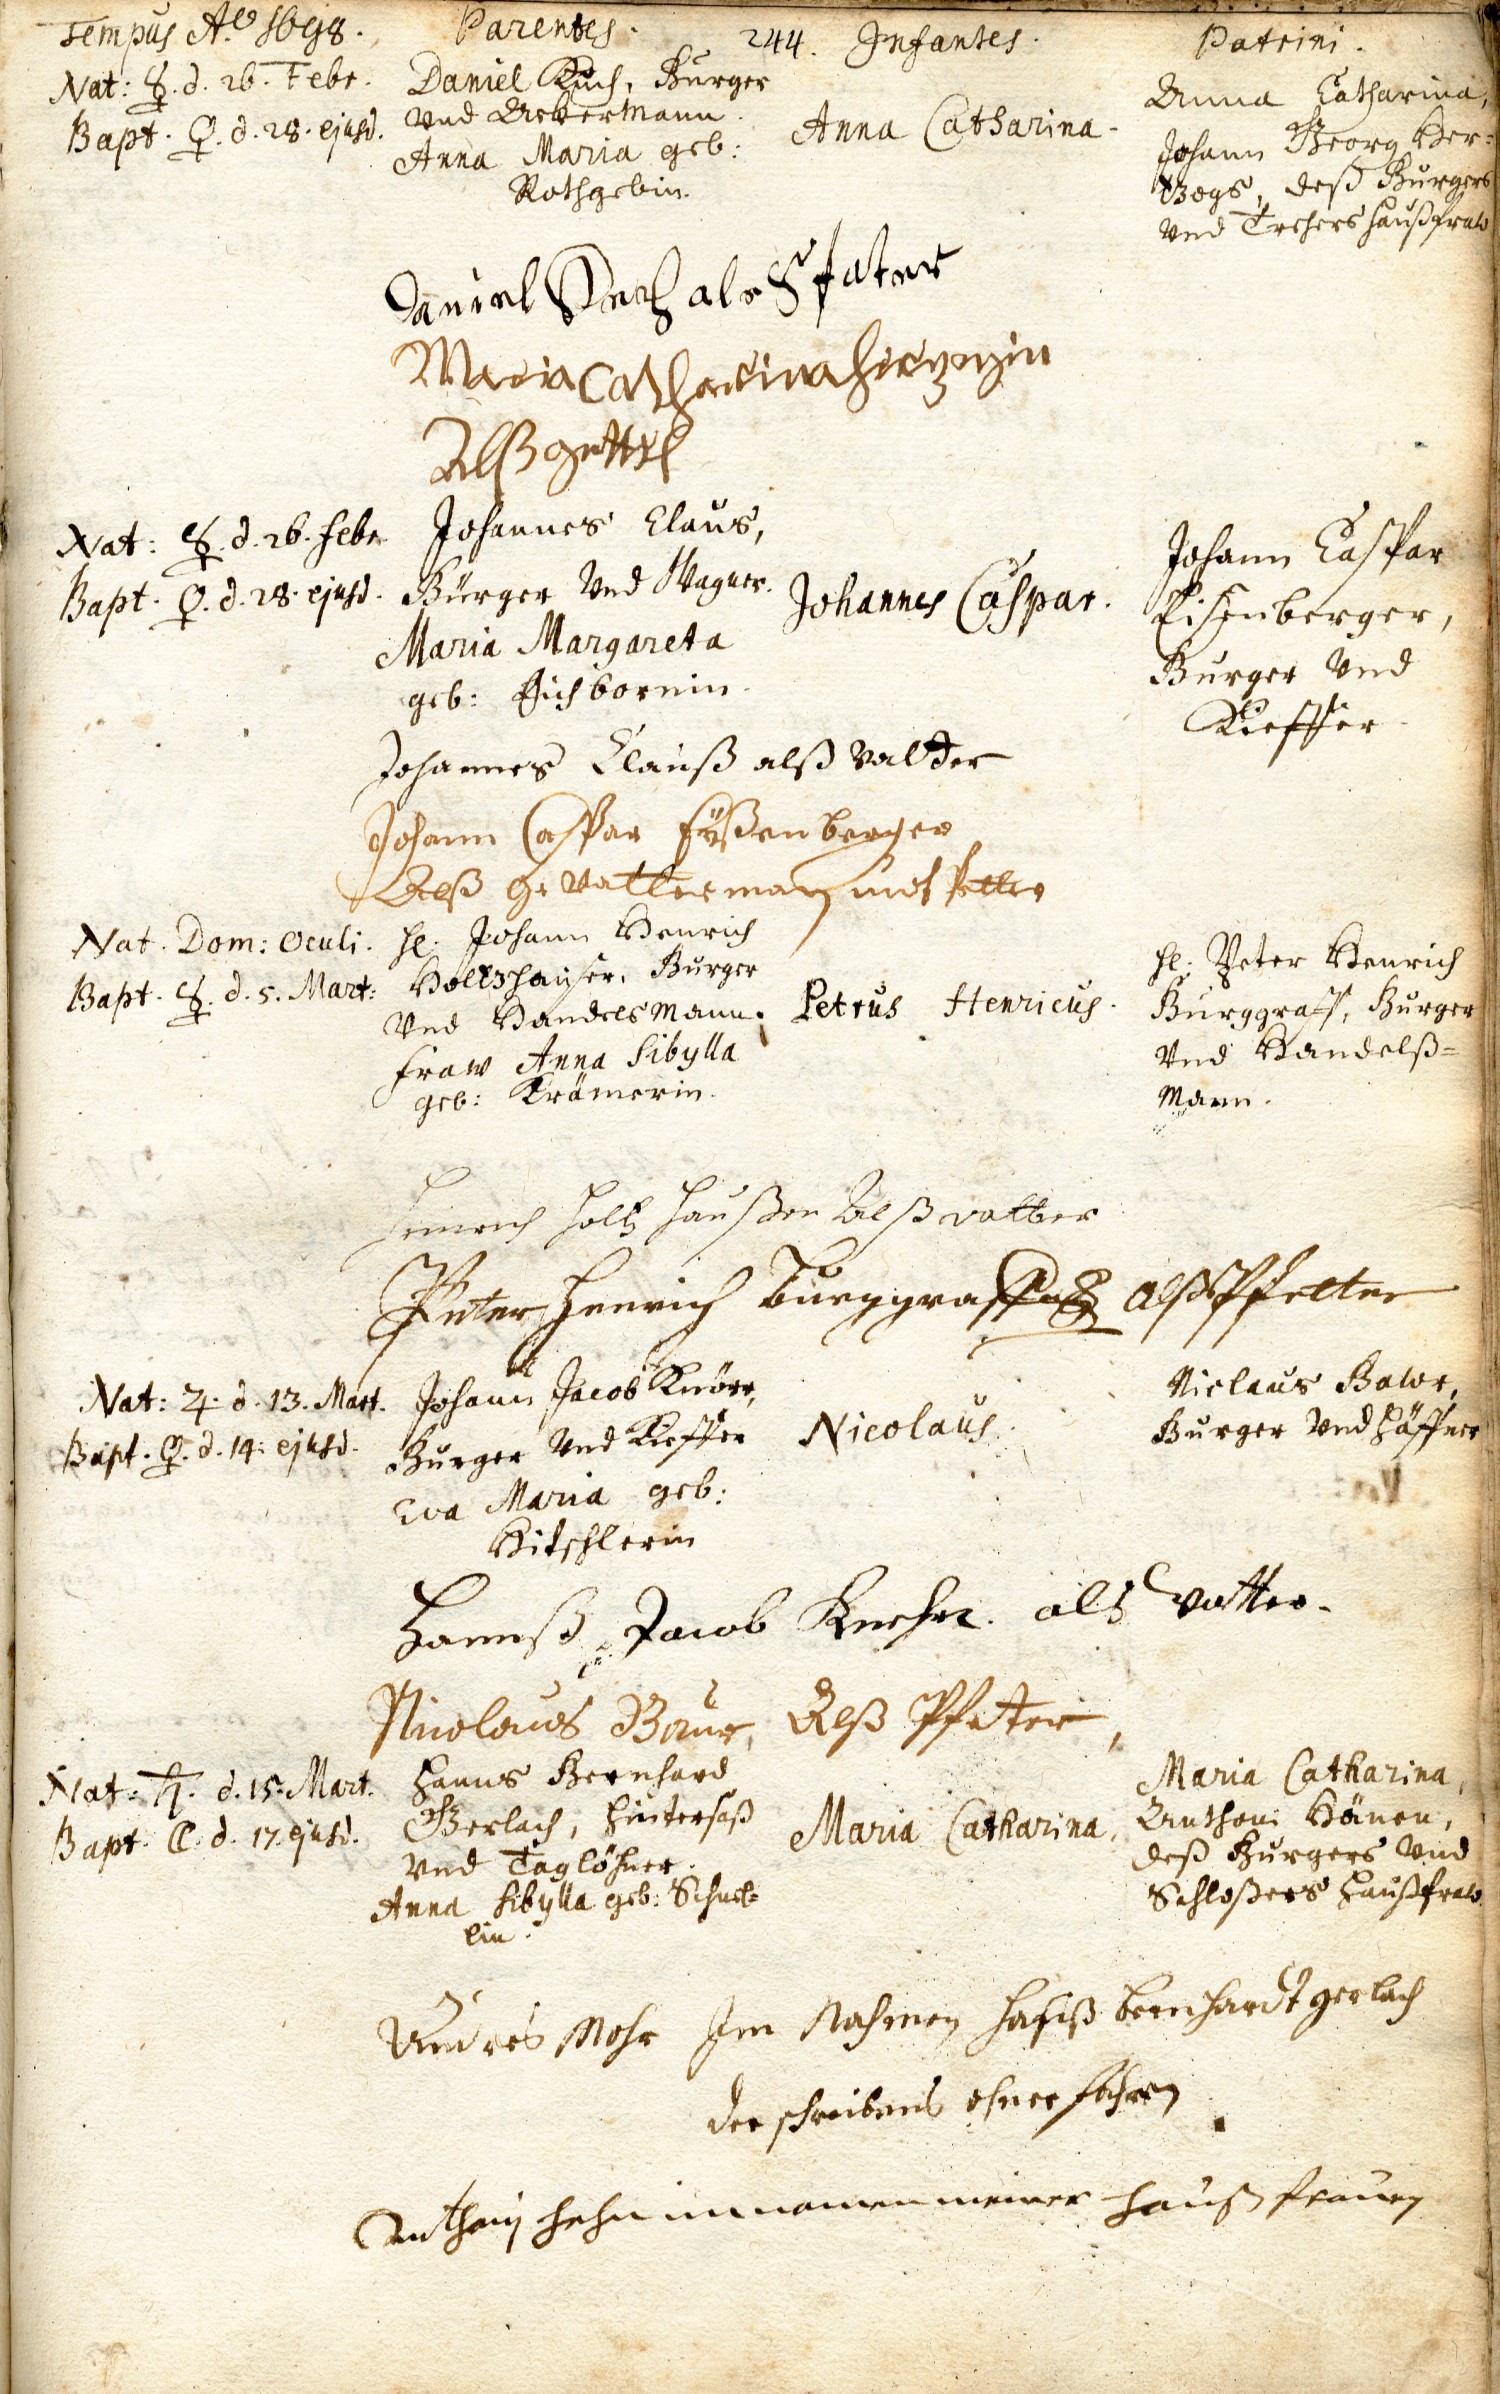 Tempus Aō 1698. Parentes. 244. Infantes. Patrini.
Nat: ☿. d. 26. Febr.
Bapt. ♀. d. 28. ejusd.
Daniel Kuch, Burger
Vnd Ackermann.
Anna Maria geb:
Rothgebin.
Anna Catharina.
Anna Catharina,
Johann Georg Her-
tzogs, deß Burgers
Vnd Trehers Haußfraw
Daniel als Vater
Maria Catharina Herzogin
Alß
Nat: ☿. d. 26. Febr.
Bapt. ♀. d. 28. ejusd.
Johannes Claus,
Bürger Vnd Wagner.
Maria Margareta
geb: Eichbornin.
Johannes Caspar.
Johann Caspar
Eisenberger,
Burger Vnd
Kieffer.
Johannes Clauß alß Vatter
Johann Caspar Eyßenberger
Alß gevatterman undt Petter
Nat. Dom: Oculi.
Bapt. ☿. d. 5. Mart:
H: Johann Henrich
Holtzhauser, Burger
Vnd Handelsmann.
Fraw Anna Sibylla
geb: Krämerin.
Petrus Henricus.
H: Peter Henrich
Burggraff, Burger
Vnd Handelß-
Mann.
Henrich Holtz Haußen Alß vatter
Peter Henrich Burggraff alß Pfetter
Nat: ♃. d. 13. Mart.
Bapt. ♀. d. 14. ejusd.
Johann Jacob Knörr,
Burger Vnd Kieffer
Eva Maria geb:
Hitschlerin
Nicolaus.
Niclaus Bawr,
Burger Vnd Häffner
Hannß Jacob Knehr. alß Vatter.
Nicolaus Baur, Alß Pfetter,
Nat: ♄. d. 15. Mart.
Bapt. ☾. d. 17. ejusd.
Hanns Bernhard
Gerlach, Hintersaß
Vnd Taglöhner.
Anna Sibylla geb: Schnel-
lin.
Maria Catharina.
Maria Catharina,
Anthoni Hänen,
deß Burgers Vnd
Schloßers Haußfraw
Andres Mohr Im Nahmen Hanß bernhardt gerlach
der schreibens ohnerfahren
Anthony Hehn in namen meiner Haußfrauen